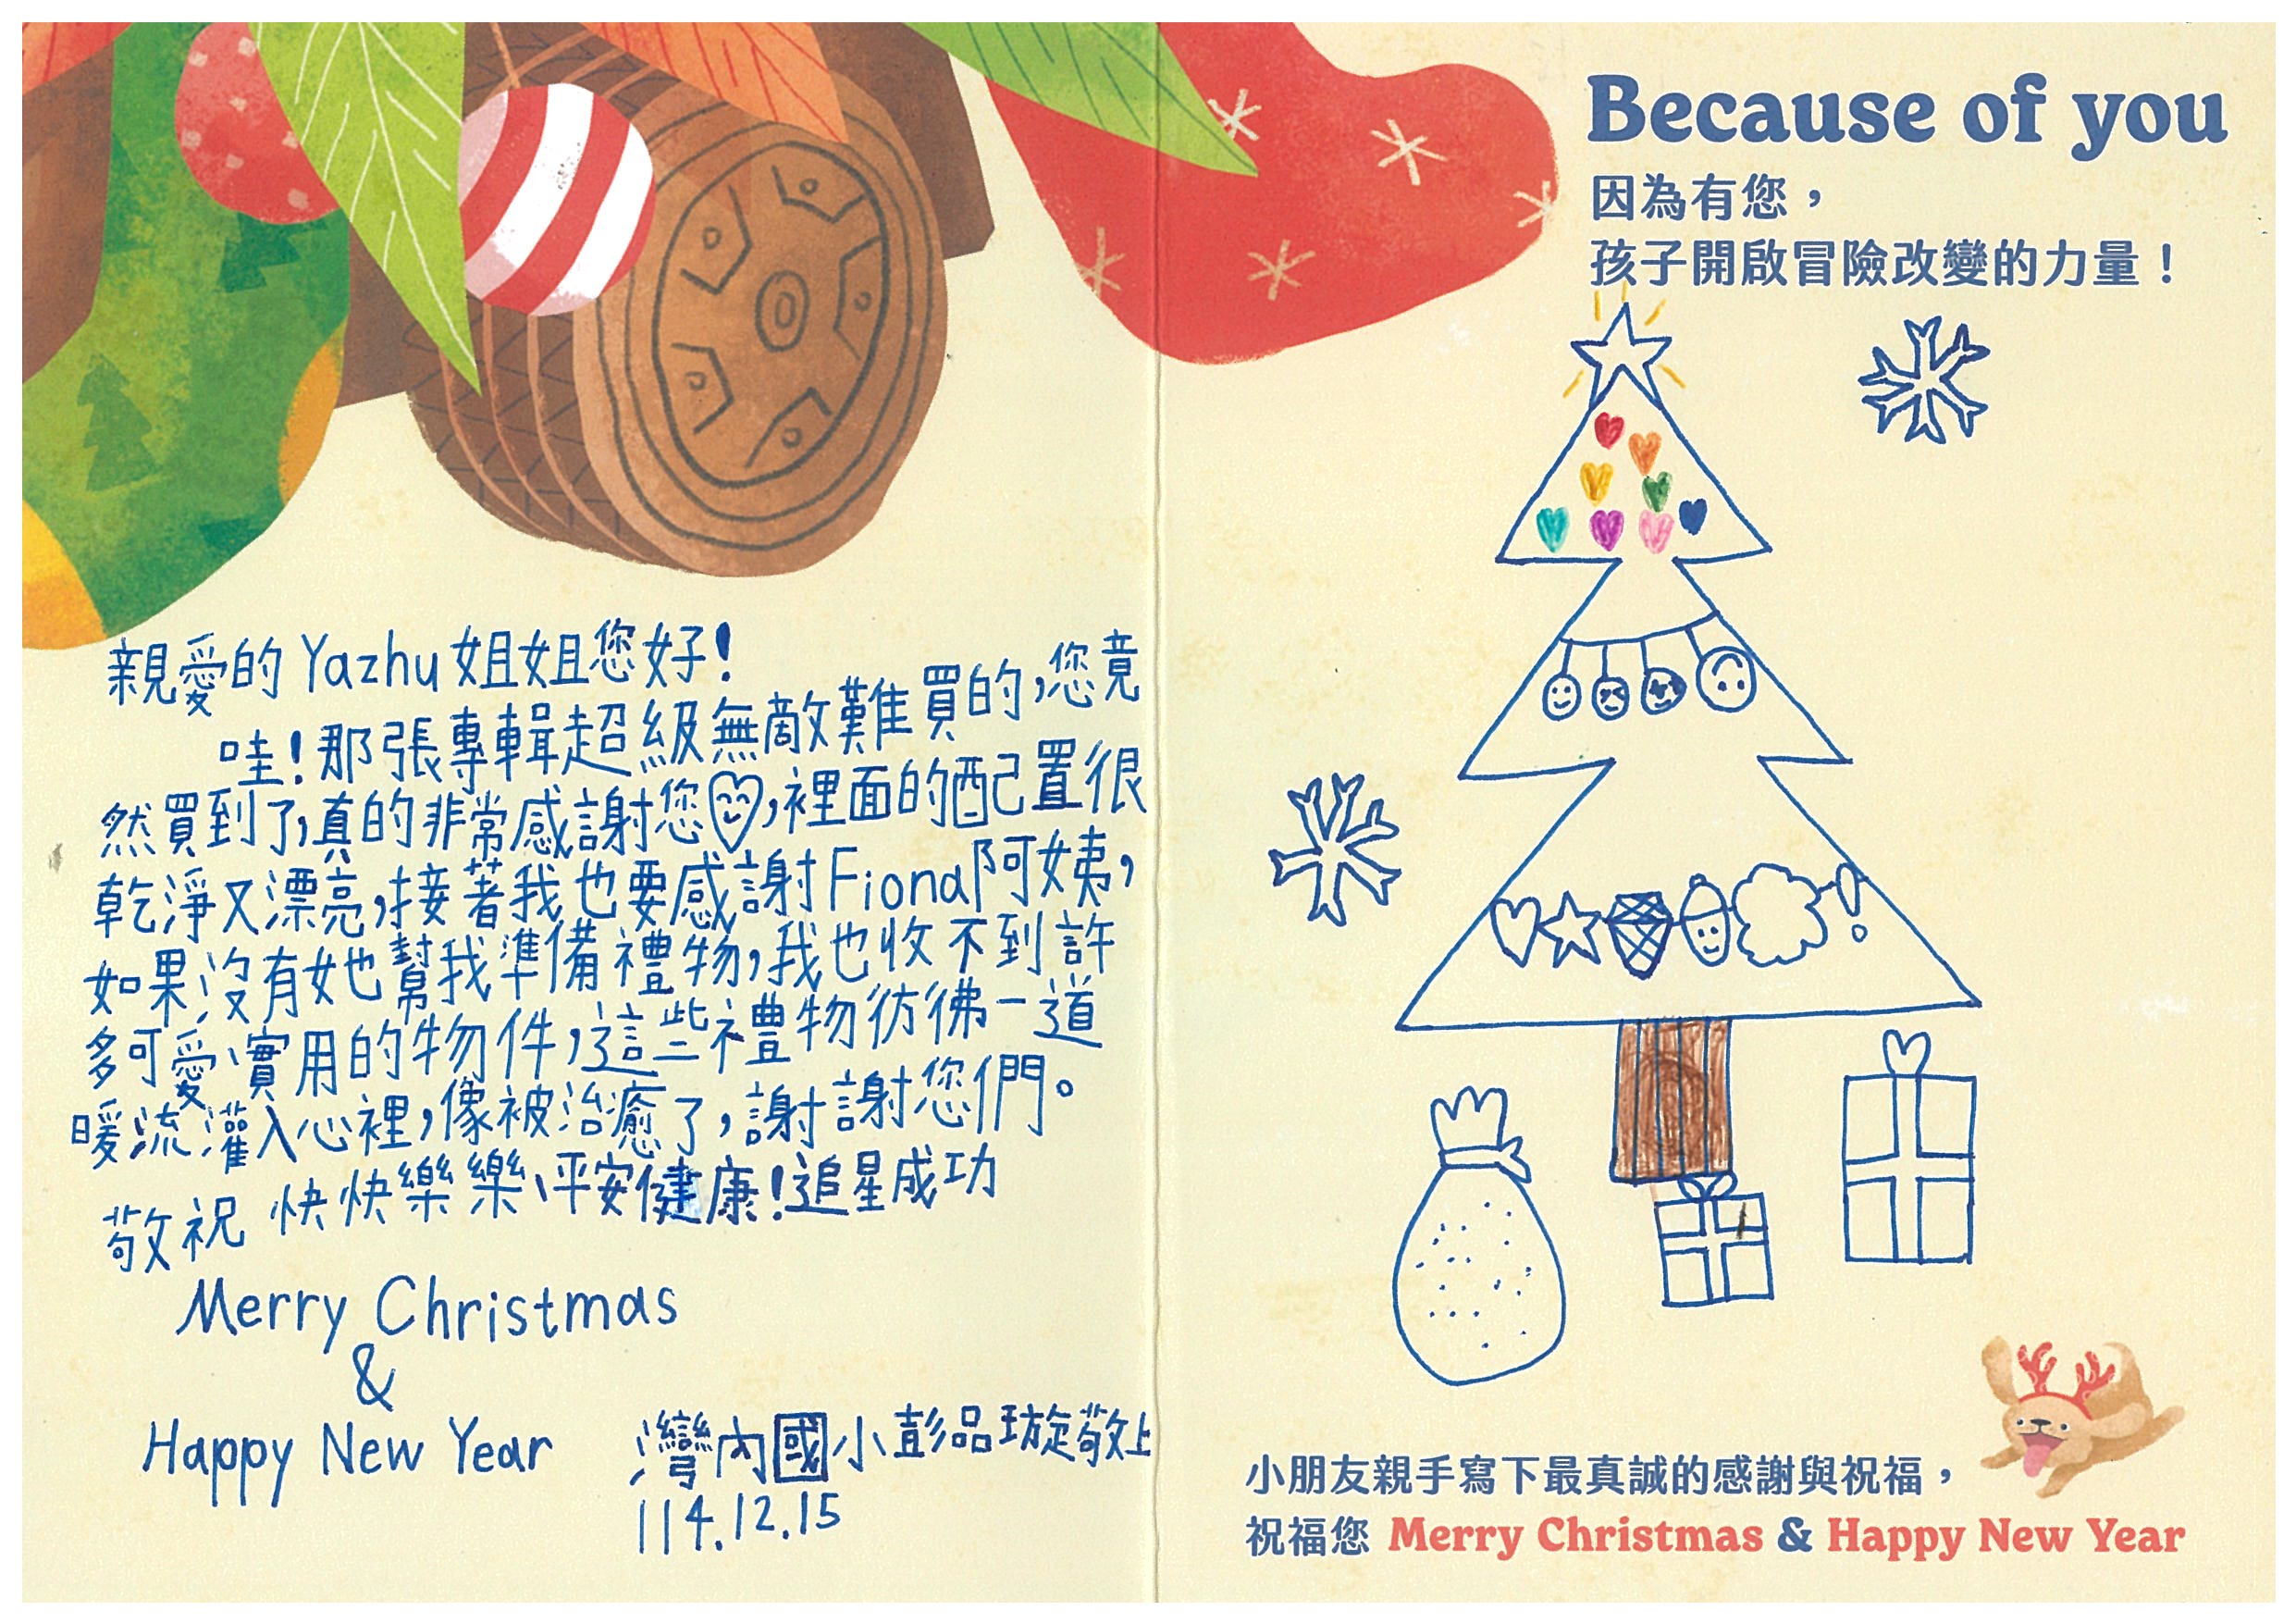 Because of you
因為有您，
孩子開啟冒險改變的力量！
親愛的 Yazhu 姐姐您好!
哇!那張專輯超級無敵難買的,您竟
然買到了,真的非常感謝您,裡面的配置很
乾淨又漂亮,接著我也要感謝Fiona阿姨,
如果沒有她幫我準備禮物,我也收不到許
多可愛、實用的物件,這些禮物彷彿一道
暖流灌入心裡,像被治癒了,謝謝您們。
敬祝 快快樂樂、平安健康!追星成功
Merry Christmas
&
Happy New Year
灣內國小彭品璇敬上
114.12.15
小朋友親手寫下最真誠的感謝與祝福，
祝福您 Merry Christmas & Happy New Year